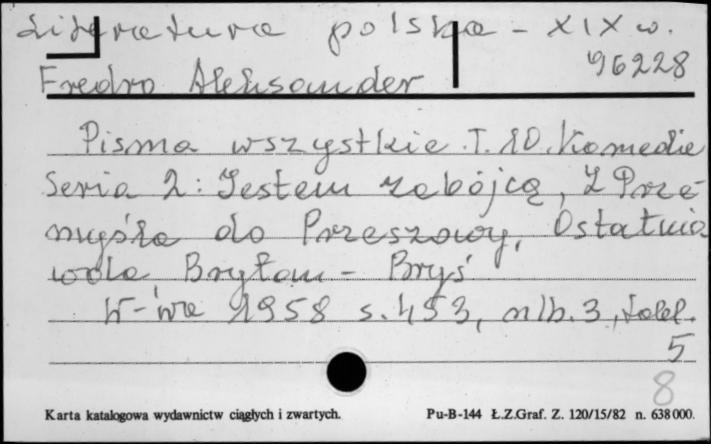 Literatura polska - XIX w.
96228
Fredro Aleksander
Pisma wszystkie. T. 10. Komedie
Seria 2: Jestem zabójcą, Z Prze-
myśla do Przeszowy, Ostatnia
wola, Brytan - Bryś
W-wa 1958 s. 453, nlb. 3, tabl.
5
8
Karta katalogowa wydawnictw ciągłych i zwartych.
Pu-B-144 Ł.Z.Graf. Z. 120/15/82 n. 638000.